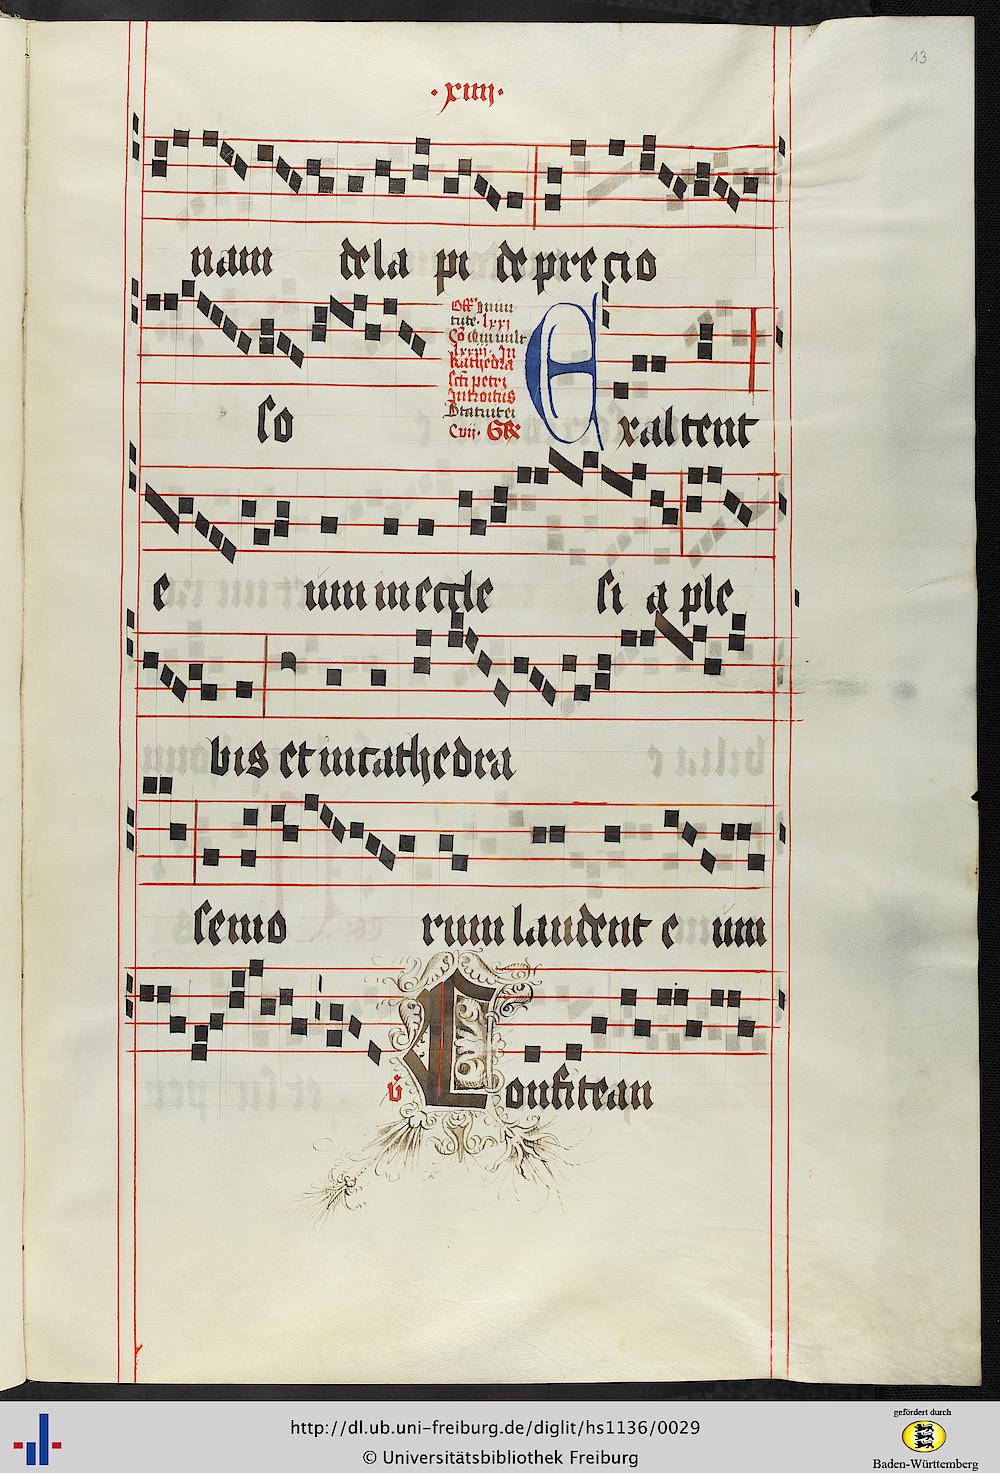 13
·xiiij·
nam dela pi de pre cio
so
Off
tute· lxxj
Co
lxxxj· In
kathedra
scti petri
Introitus
Statuit ei
Cvij· Gr
Exaltent
e um in eccle si a ple
bis et in cathedra
senio rum laudent e um
v Confitean
http://dl.ub.uni-freiburg.de/diglit/hs1136/0029
© Universitätsbibliothek Freiburg
gefördert durch
Baden-Württemberg